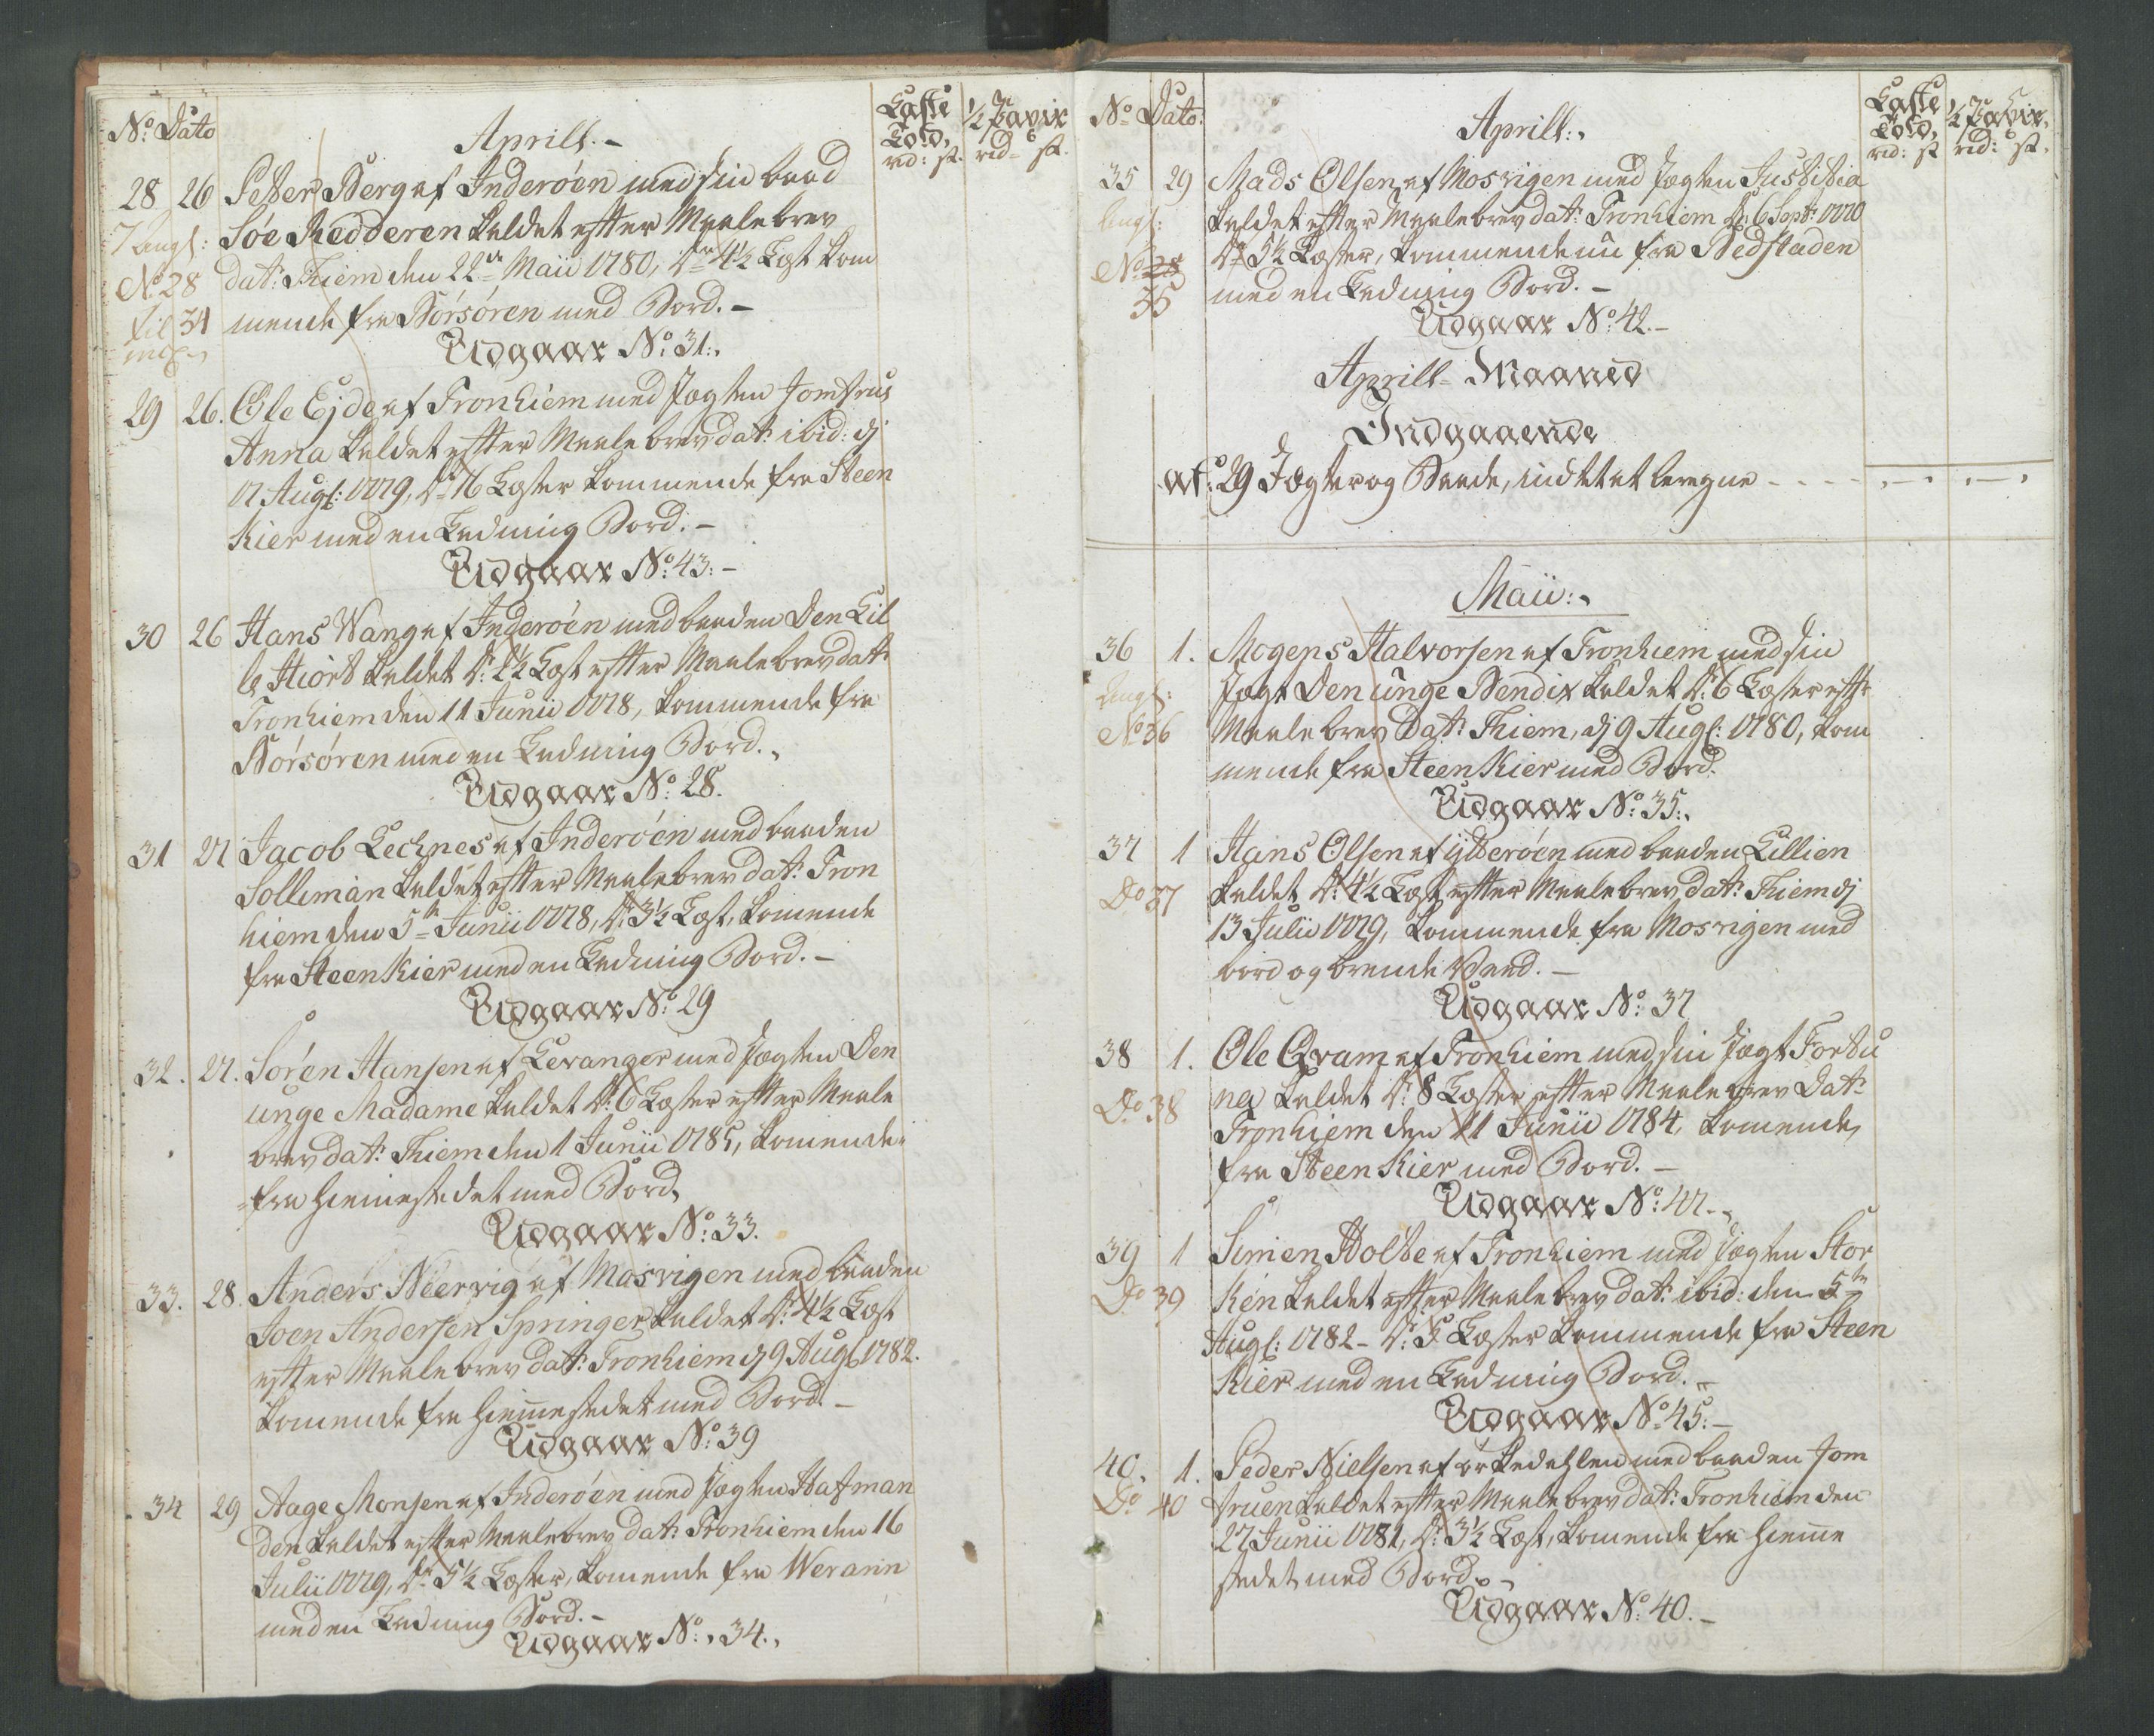 No: Dato
Aprill. -
Læste Told, rd: sk.
½ Pr Cavix rd: sk.
28 26 Petter Berg af Inderöen med sin baad
7 Angl: Söe Redderen kaldet efter Maalebrev
No 28 dat: Thiem den 22de Maii 1780, dr 4½ Læst kom
til 34 mende fra Börsören med Bord. -
incl.
Udgaar No: 31.
29 26. Ole Ejde af Tronhiem med Jagten Jomfrue
Anna kaldet efter Maalebrev dat: ibid: dj
17 Augs: 1779, dr 16 Læster kommende fra Steen
Kier med en Ladning Bord. -
Udgaar No: 43: -
30 26 Hans Wang af Inderöen med baaden Den Lil
le Hiort kaldet dr: 2½ Læst efter Maalebrev dat:
Tronhiem den 11 Junii 1778, kommende fra
Börsören med en Ladning Bord.
Udgaar No: 28.
31 27 Jacob Lechnes af Inderöen med baaden
Solliman kaldet efter Maalebrev dat: Tron
hiem den 5te Junii 1778, dr: 3½ Læst, komende
fra Steenkier med en Ladning Bord. -
Udgaar No: 29
32. 27. Sören Hansen af Levanger med Jagten Den
unge Madame kaldet dr: 6 Læster efter Maale
brev dat: Thiem den 1 Junii 1785, komende
fra Hiemestedet med Bord,
Udgaar No: 33.
33. 28. Anders Neervig af Mosvigen med baaden
Joen Andersen Springer kaldet dr: 4½ Læst
efter Maalebrev dat: Tronhiem dj 9 Augs 1782.
komende fra Hiemestedet med Bord. -
Udgaar No: 39
34 29 Aage Monsen af Inderöen med Jagten Hafman
den kaldet efter Maalebrev dat: Tronhiem den 16
Julii 1779, dr 5½ Læster, komende fra Werann
med en Ladning Bord. -
Udgaar No: 34.
No: Dato:
Aprill:
Læste Told, rd: sk
½ Pr Cavix, rd: sk.
35 29 Mads Olsen af Mosvigen med Jagten Justitia
Angl: kaldet efter Maalebrev dat: Tronhiem d: 6 Sept: 1770
No 28 dr 5½ Læster, kommende nu fra Bedstaden
35 med en Ladning Bord. -
Udgaar No: 42. -
Aprill Maaned
Indgaaende
af: 29 Jagter og Baade, indtet at beregne - - - - . - . - .
Maii:
36 1. Mogens Halvorsen af Tronhiem med sin
Angl: Jagt Den unge Bendix kaldet dr: 6 Læster eftr
No 36 Maalebrev dat: Thiem, dj 9 Augs: 1780, kom
mende fra Steenkier med Bord.
Udgaar No: 35:
37 1 Hans Olsen af Ytteröen med baaden Lillien
Do 37 kaldet dr: 4½ Læst efter Maalebrev dat: Thiem dj
13 Julii 1779, kommende fra Mosvigen med
bord og brende Veed. -
Udgaar No: 37
38 1. Ole Qvam af Tronhiem med sin Jagt Fortu
Do 38 na kaldet dr: 8 Læster efter Maalebrev dat:
Tronhiem den 11 Junii 1784, komende,
fra Steenkier med Bord. -
Udgaar No: 47. -
39 1 Simen Holte af Tronhiem med Jagten Stor
Do 39 ken kaldet efter Maalebrev dat: ibid: den 5te
Augs: 1782 - dr: 5 Læster kommende fra Steen
Kier med en Ladning Bord. -
Udgaar No: 45: -
40. 1. Peder Nielsen af Orkedahlen med baaden Jom
Do 40 fruen kaldet efter Maalebrev dat: Tronhiem den
27 Junii 1781, dr: 3½ Læst, komende fra Hieme
stedet med Bord. -
Udgaar No: 40. -